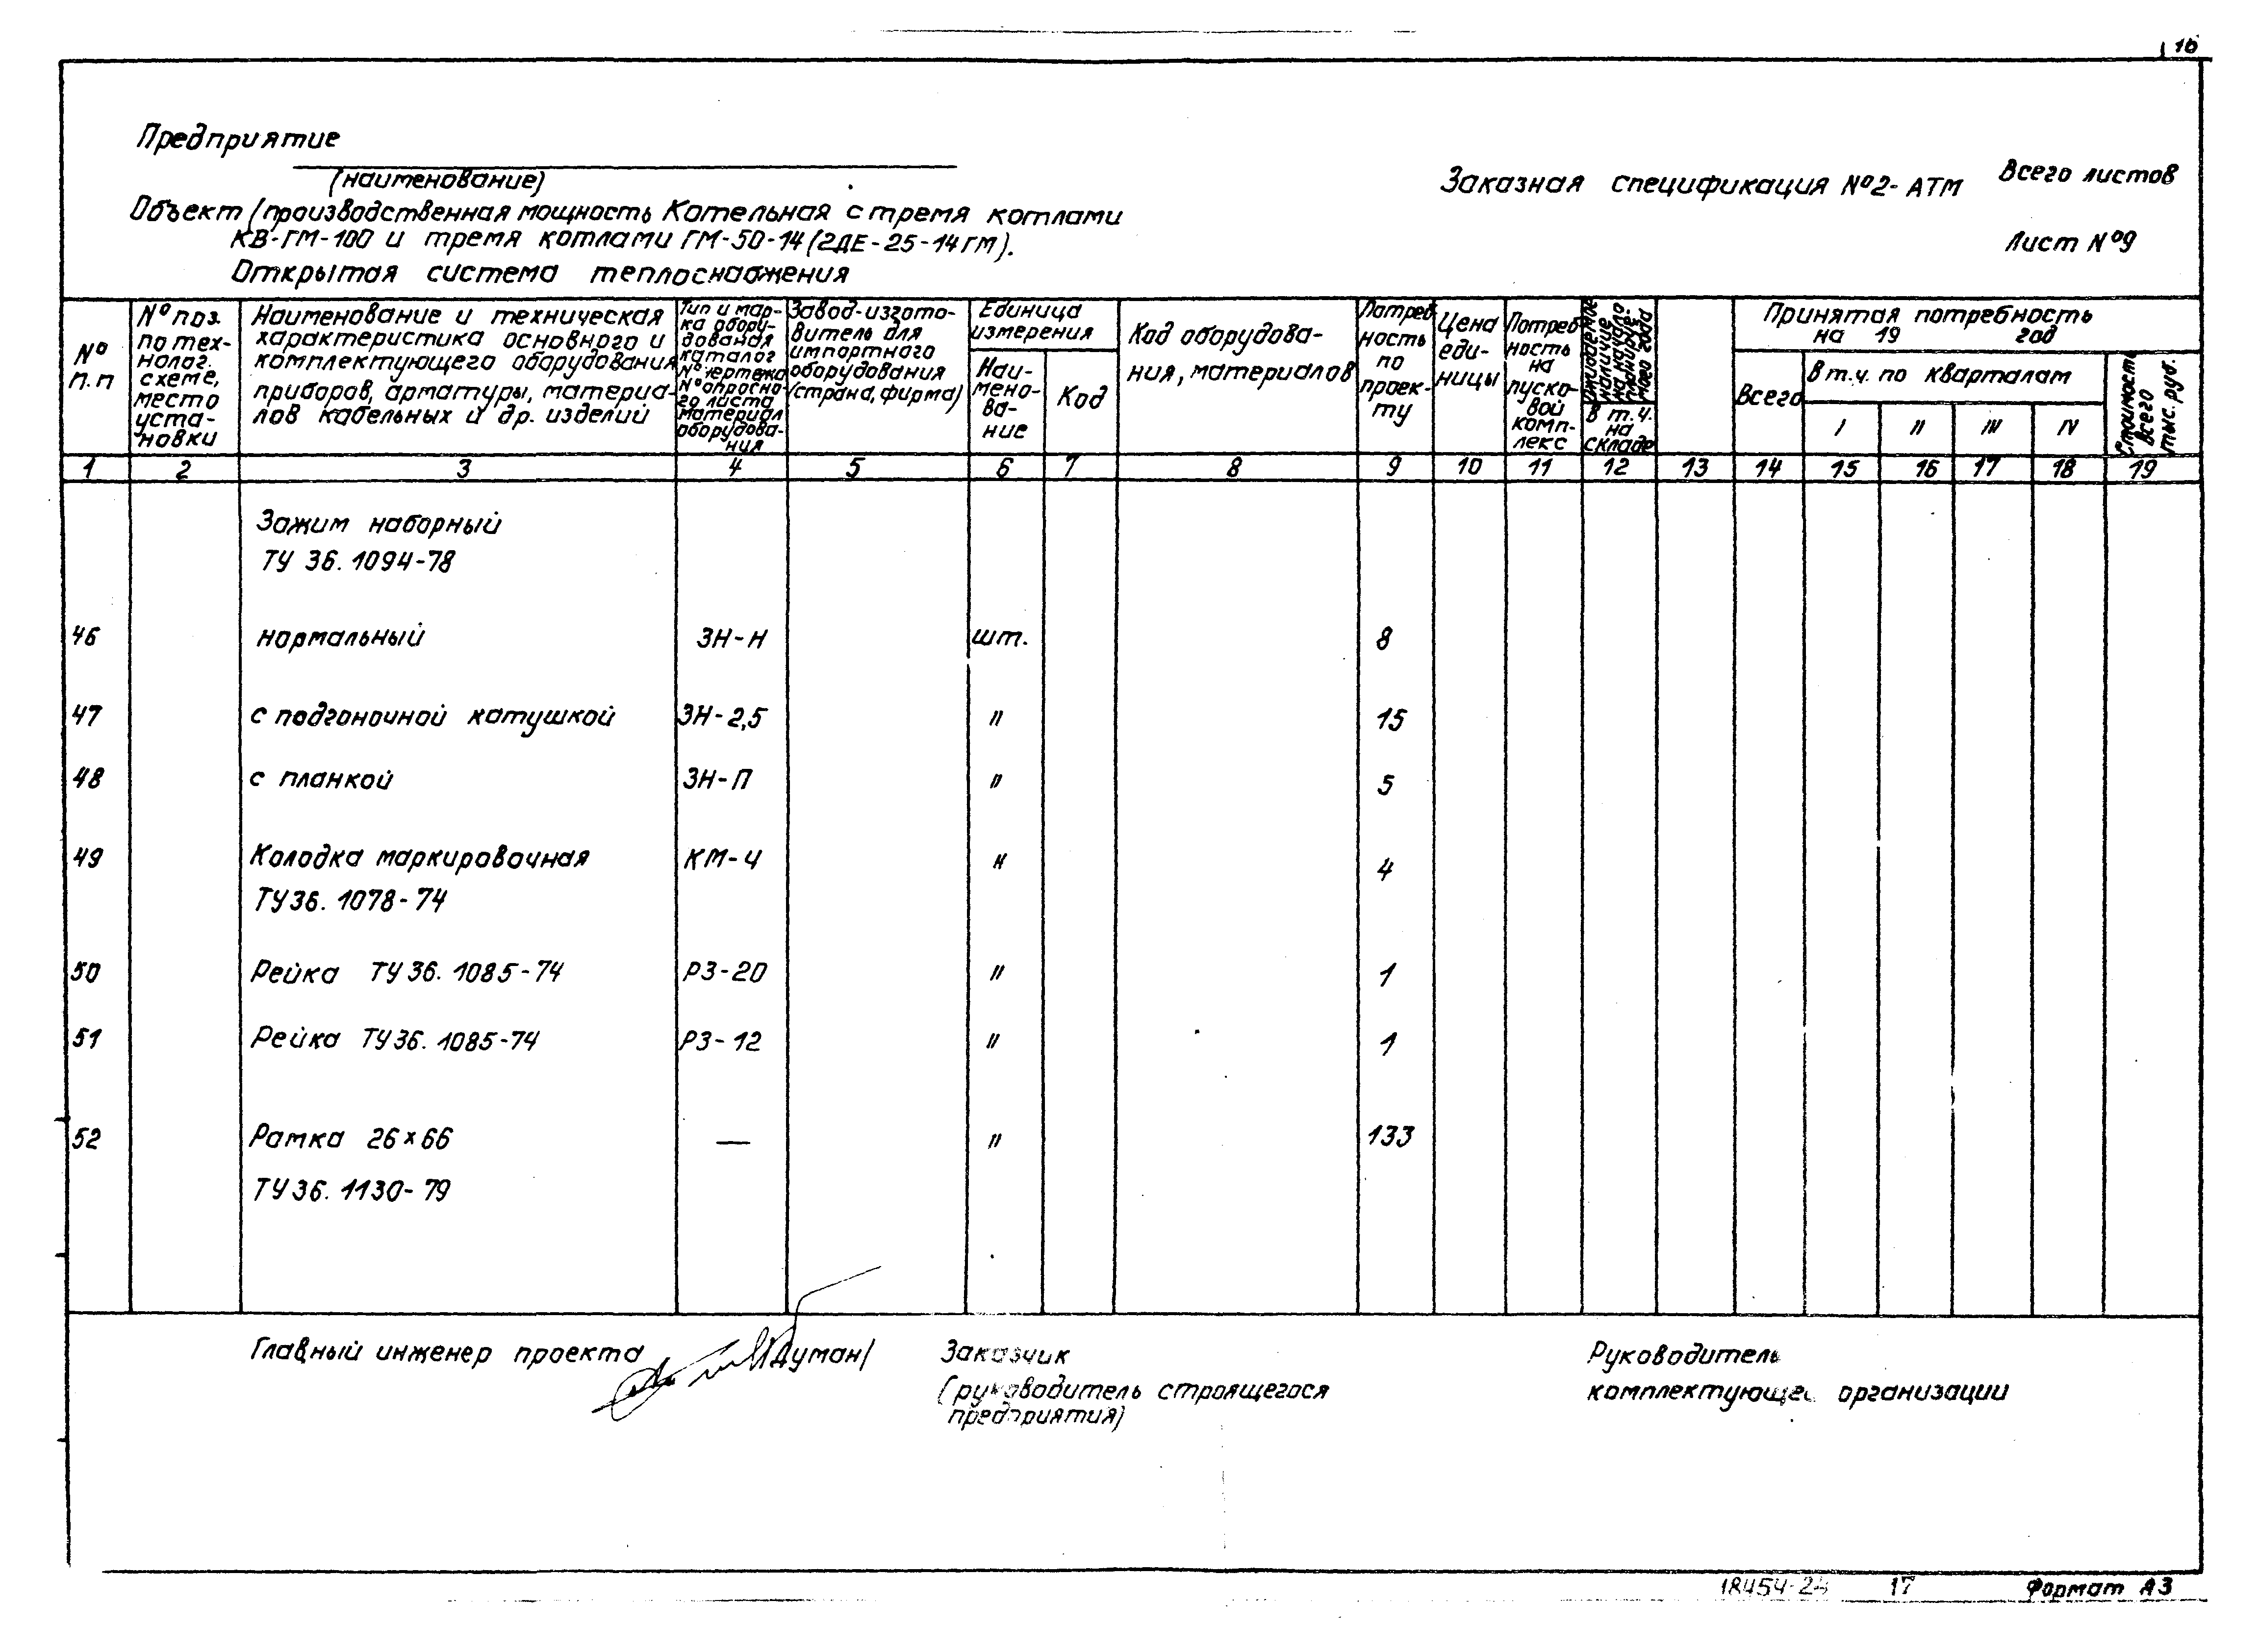 16
Предприятие
(наименование)
Заказная спецификация №2-АТМ
Всего листов
Объект (производственная мощность Котельная с тремя котлами
КВ-ГМ-100 и тремя котлами ГМ-50-14 (2ДЕ-25-14ГМ).
Лист №9
Открытая система теплоснабжения
№
п.п
№ поз.
по тех-
нолог.
схеме,
место
уста-
новки
Наименование и техническая
характеристика основного и
комплектующего оборудования
приборов, арматуры, материа-
лов кабельных и др. изделий
Тип и мар-
ка обору-
дования
каталог
№ чертежа
№ опросно-
го листа
материал
оборудова-
ния
Завод-изгото-
витель для
импортного
оборудования
(страна, фирма)
Единица
измерения
Наи-
мено-
ва-
ние
Код
Код оборудова-
ния, материалов
Потреб
ность
по
проек-
ту
Цена
еди-
ницы
Потреб
ность
на
пуско-
вой
комп-
лекс
Ожидаемое
наличие
на начало
планируе-
мого года
В т.ч.
на
складе
Принятая потребность
на 19 год
Всего
В т.ч. по кварталам
I II III IV
Стоимость
всего
тыс. руб.
1 2 3 4 5 6 7 8 9 10 11 12 13 14 15 16 17 18 19
Зажим наборный
ТУ 36.1094-78
46 нормальный ЗН-Н шт. 8
47 с подгоночной катушкой ЗН-2,5 " 15
48 с планкой ЗН-П " 5
49 Колодка маркировочная КМ-4 " 4
ТУ36.1078-74
50 Рейка ТУ36.1085-74 РЗ-20 " 1
51 Рейка ТУ36.1085-74 РЗ-12 " 1
52 Рамка 26×66 — " 133
ТУ36.1130-79
Главный инженер проекта /Думан/
Заказчик
(руководитель строящегося
предприятия)
Руководитель
комплектующей организации
17 Формат А3